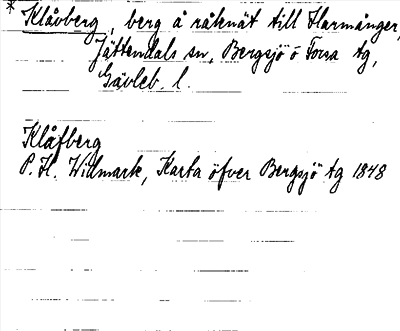 * Klåvberg, berg å råknät till Harmånger,
Jättendals sn, Bergsjö o Forsa tg,
Gävleb. l.
Klåfberg
P. H. Widmark, Karta öfver Bergsjö tg 1848